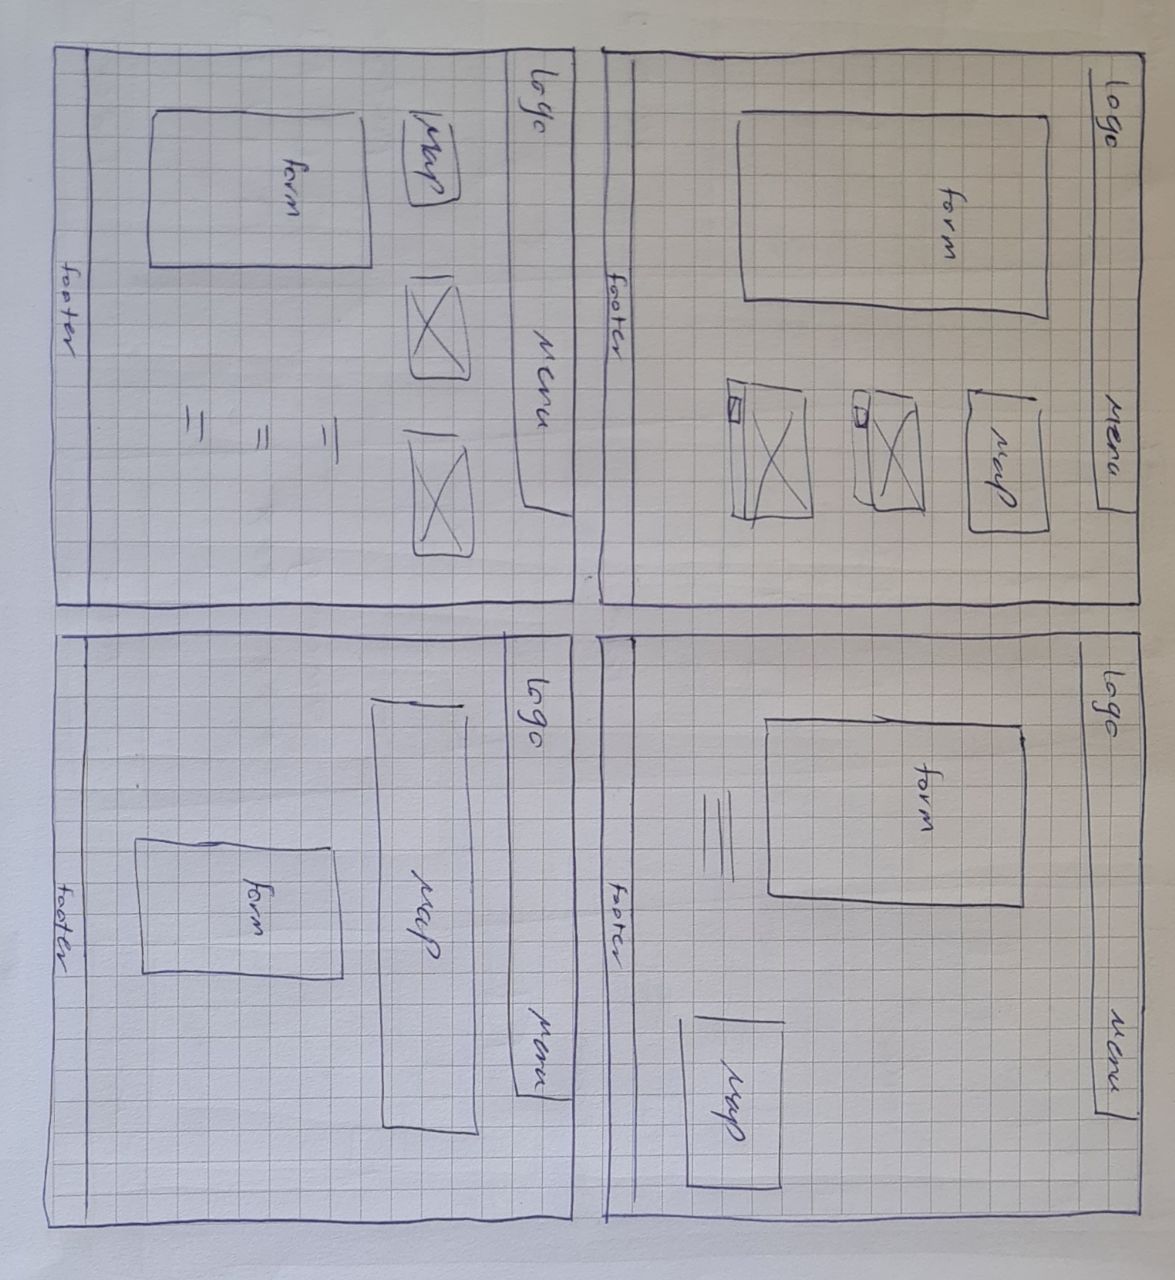 logo Menu
form
Map
footer
logo Menu
form
Map
footer
Logo Menu
Map
form
footer
Logo Menu
Map
form
footer